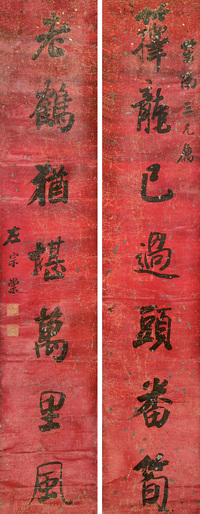 三兄屬
籜龍已過頭番筍
老鶴猶堪萬里風
左宗棠